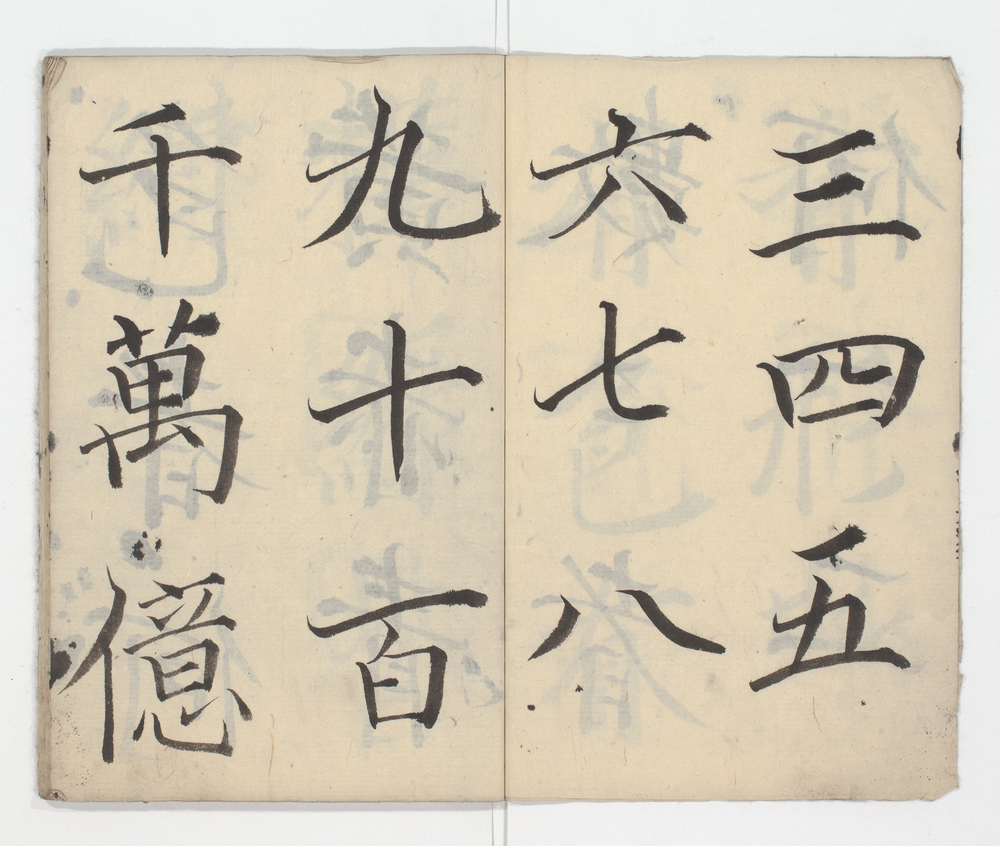 三四五
六七八
九十百
千萬億